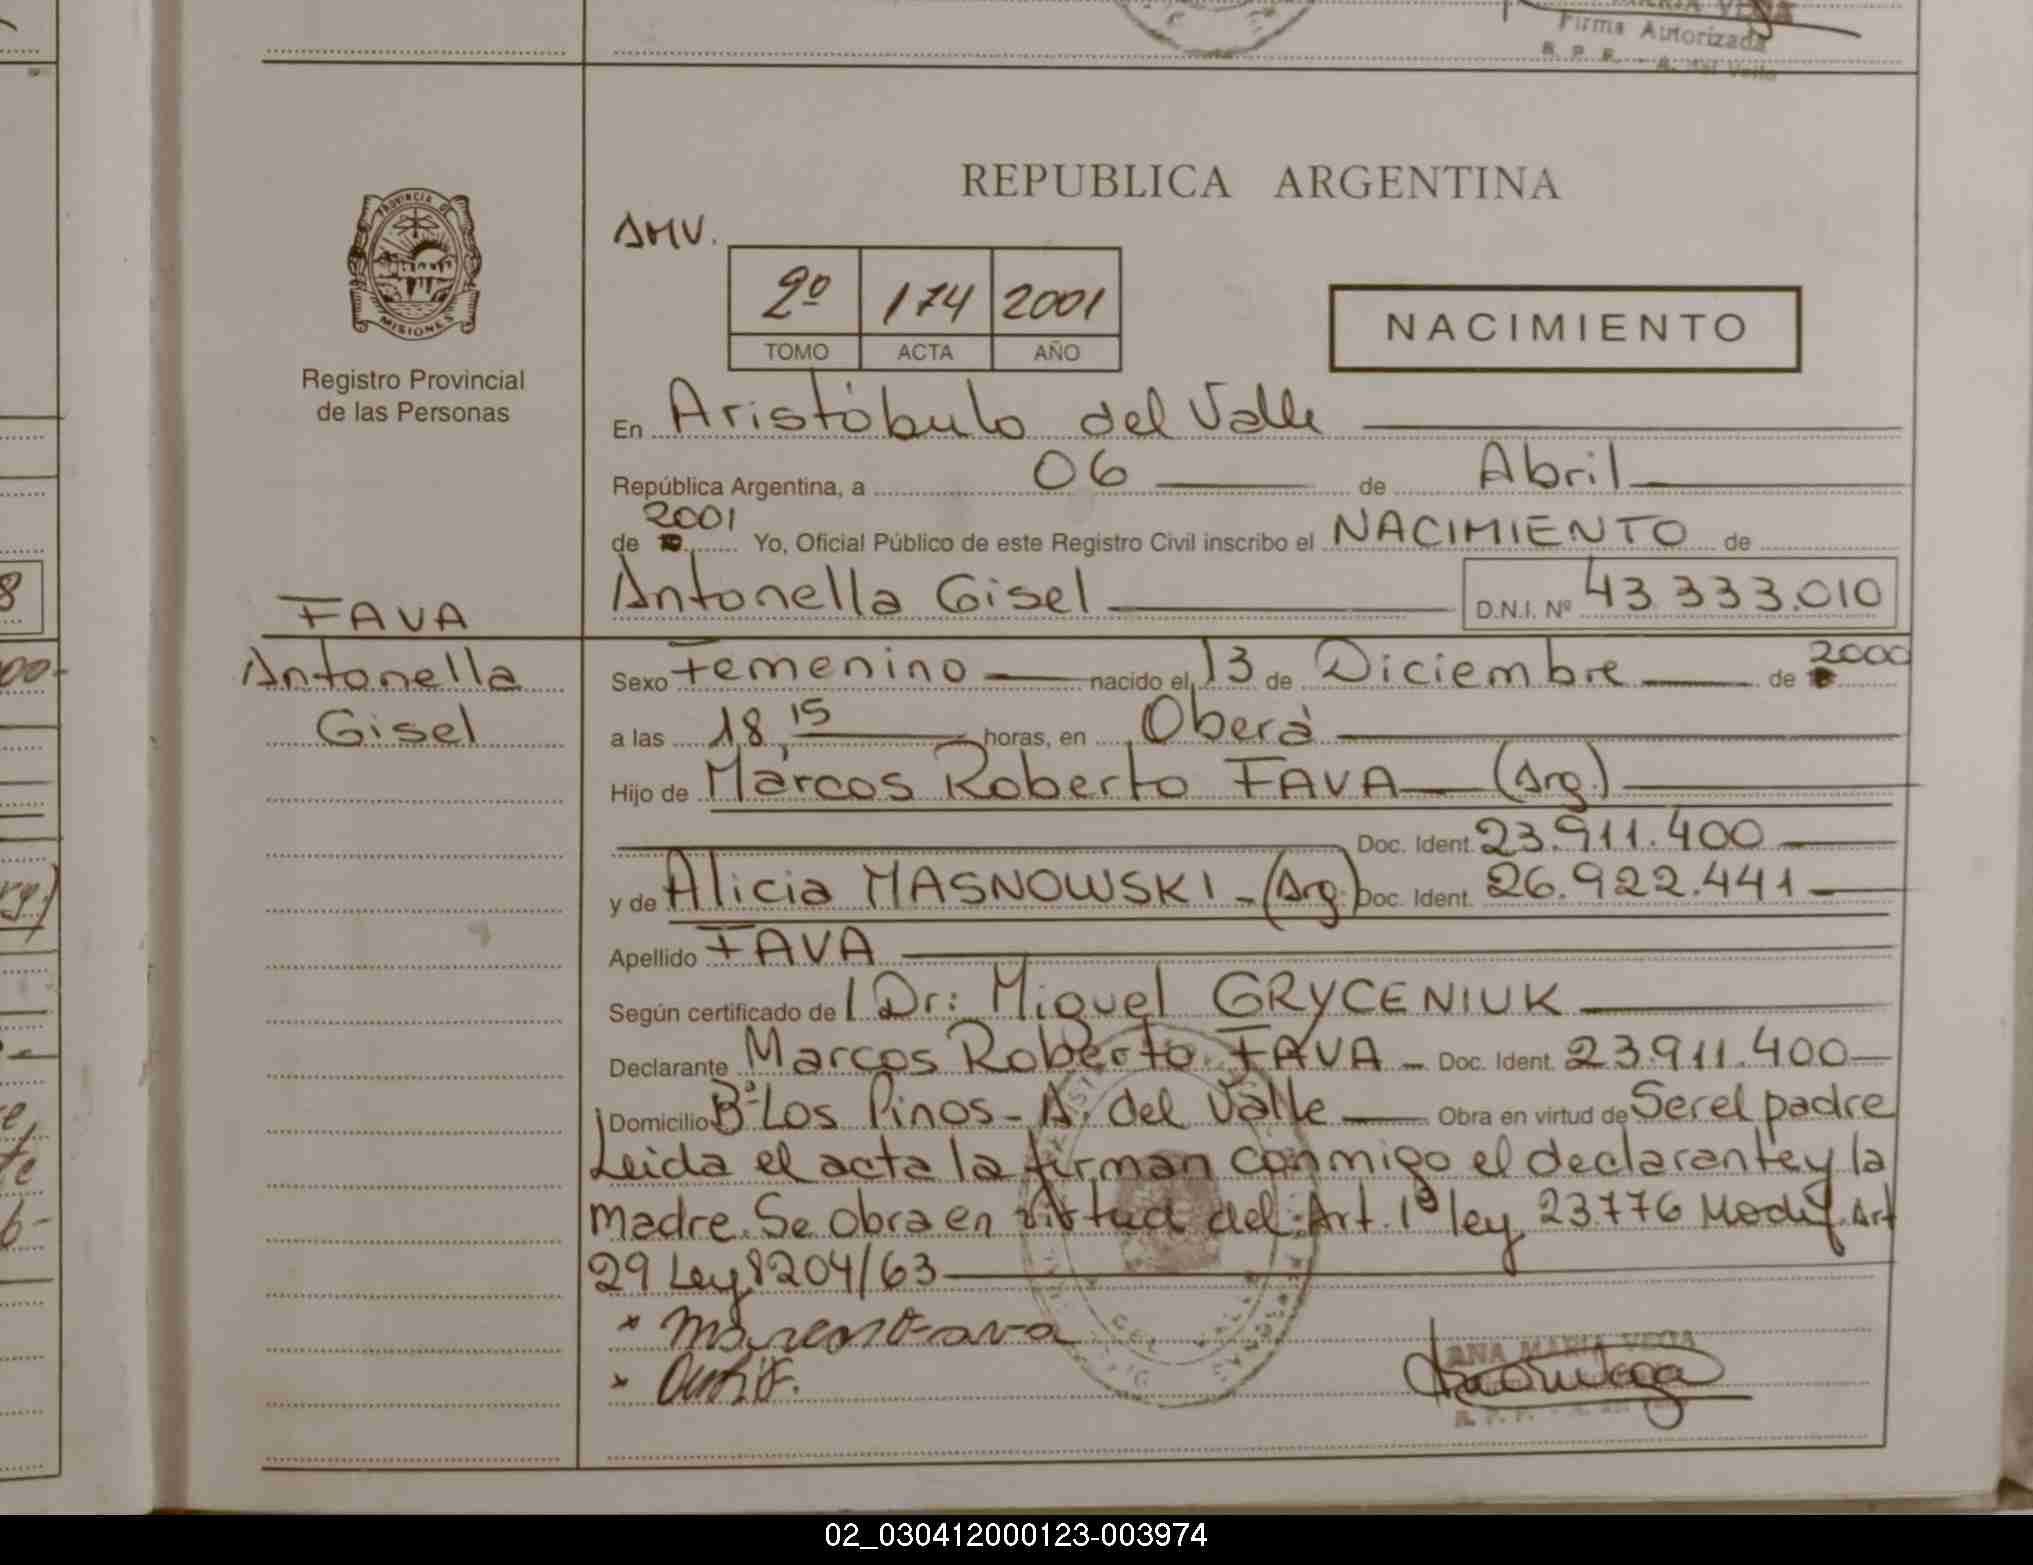 Firma Autorizada
REPUBLICA ARGENTINA
PROVINCIA DE
MISIONES
Registro Provincial
de las Personas
AMV.
2º 174 2001
TOMO ACTA AÑO
NACIMIENTO
En Aristóbulo del Valle
República Argentina, a 06 de Abril
de 2001 Yo, Oficial Público de este Registro Civil inscribo el NACIMIENTO de
Antonella Gisel D.N.I. Nº 43.333.010
FAVA
Antonella
Gisel
Sexo Femenino nacido el 13 de Diciembre de 2000
a las 18,15 horas, en Oberá
Hijo de Marcos Roberto FAVA (Arg.)
Doc. Ident. 23.911.400
y de Alicia MASNOWSKI - (Arg.) Doc. Ident. 26.922.441
Apellido FAVA
Según certificado de l Dr: Miguel GRYCENIUK
Declarante Marcos Roberto FAVA - Doc. Ident. 23.911.400
Domicilio Bº Los Pinos - A. del Valle Obra en virtud de Ser el padre
Leida el acta la firman conmigo el declarante y la
madre. Se obra en virtud del Art. 1º ley 23.776 Modif. Art
29 Ley 8204/63
ANA MARIA VEGA
02_030412000123-003974